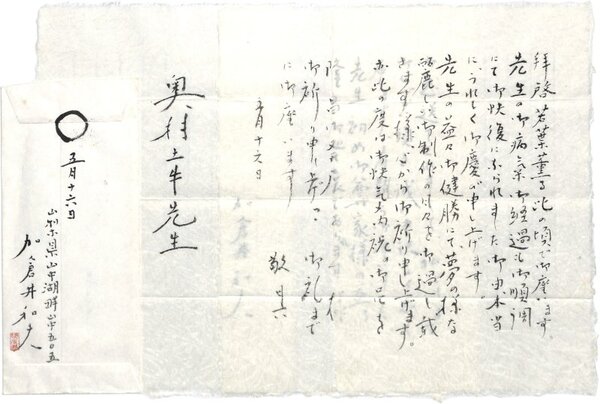 拝啓 若葉薫る此の頃で御座います。
先生の御病気御経過も御順調
にて御快復になられました御由本当
にうれしく御慶び申し上げます。
先生の益々御健勝にて夢の様な
御制作の日々を御過し戴
きます様、心から御祈り申し上げます。
尚此の度は御快気御内祝の御品を
御祈り申し上つゝ、御礼まで
に御座います
敬具
五月十六日
奥村土牛先生
五月十六日
山梨県山中湖畔山中五〇五
加倉井和夫